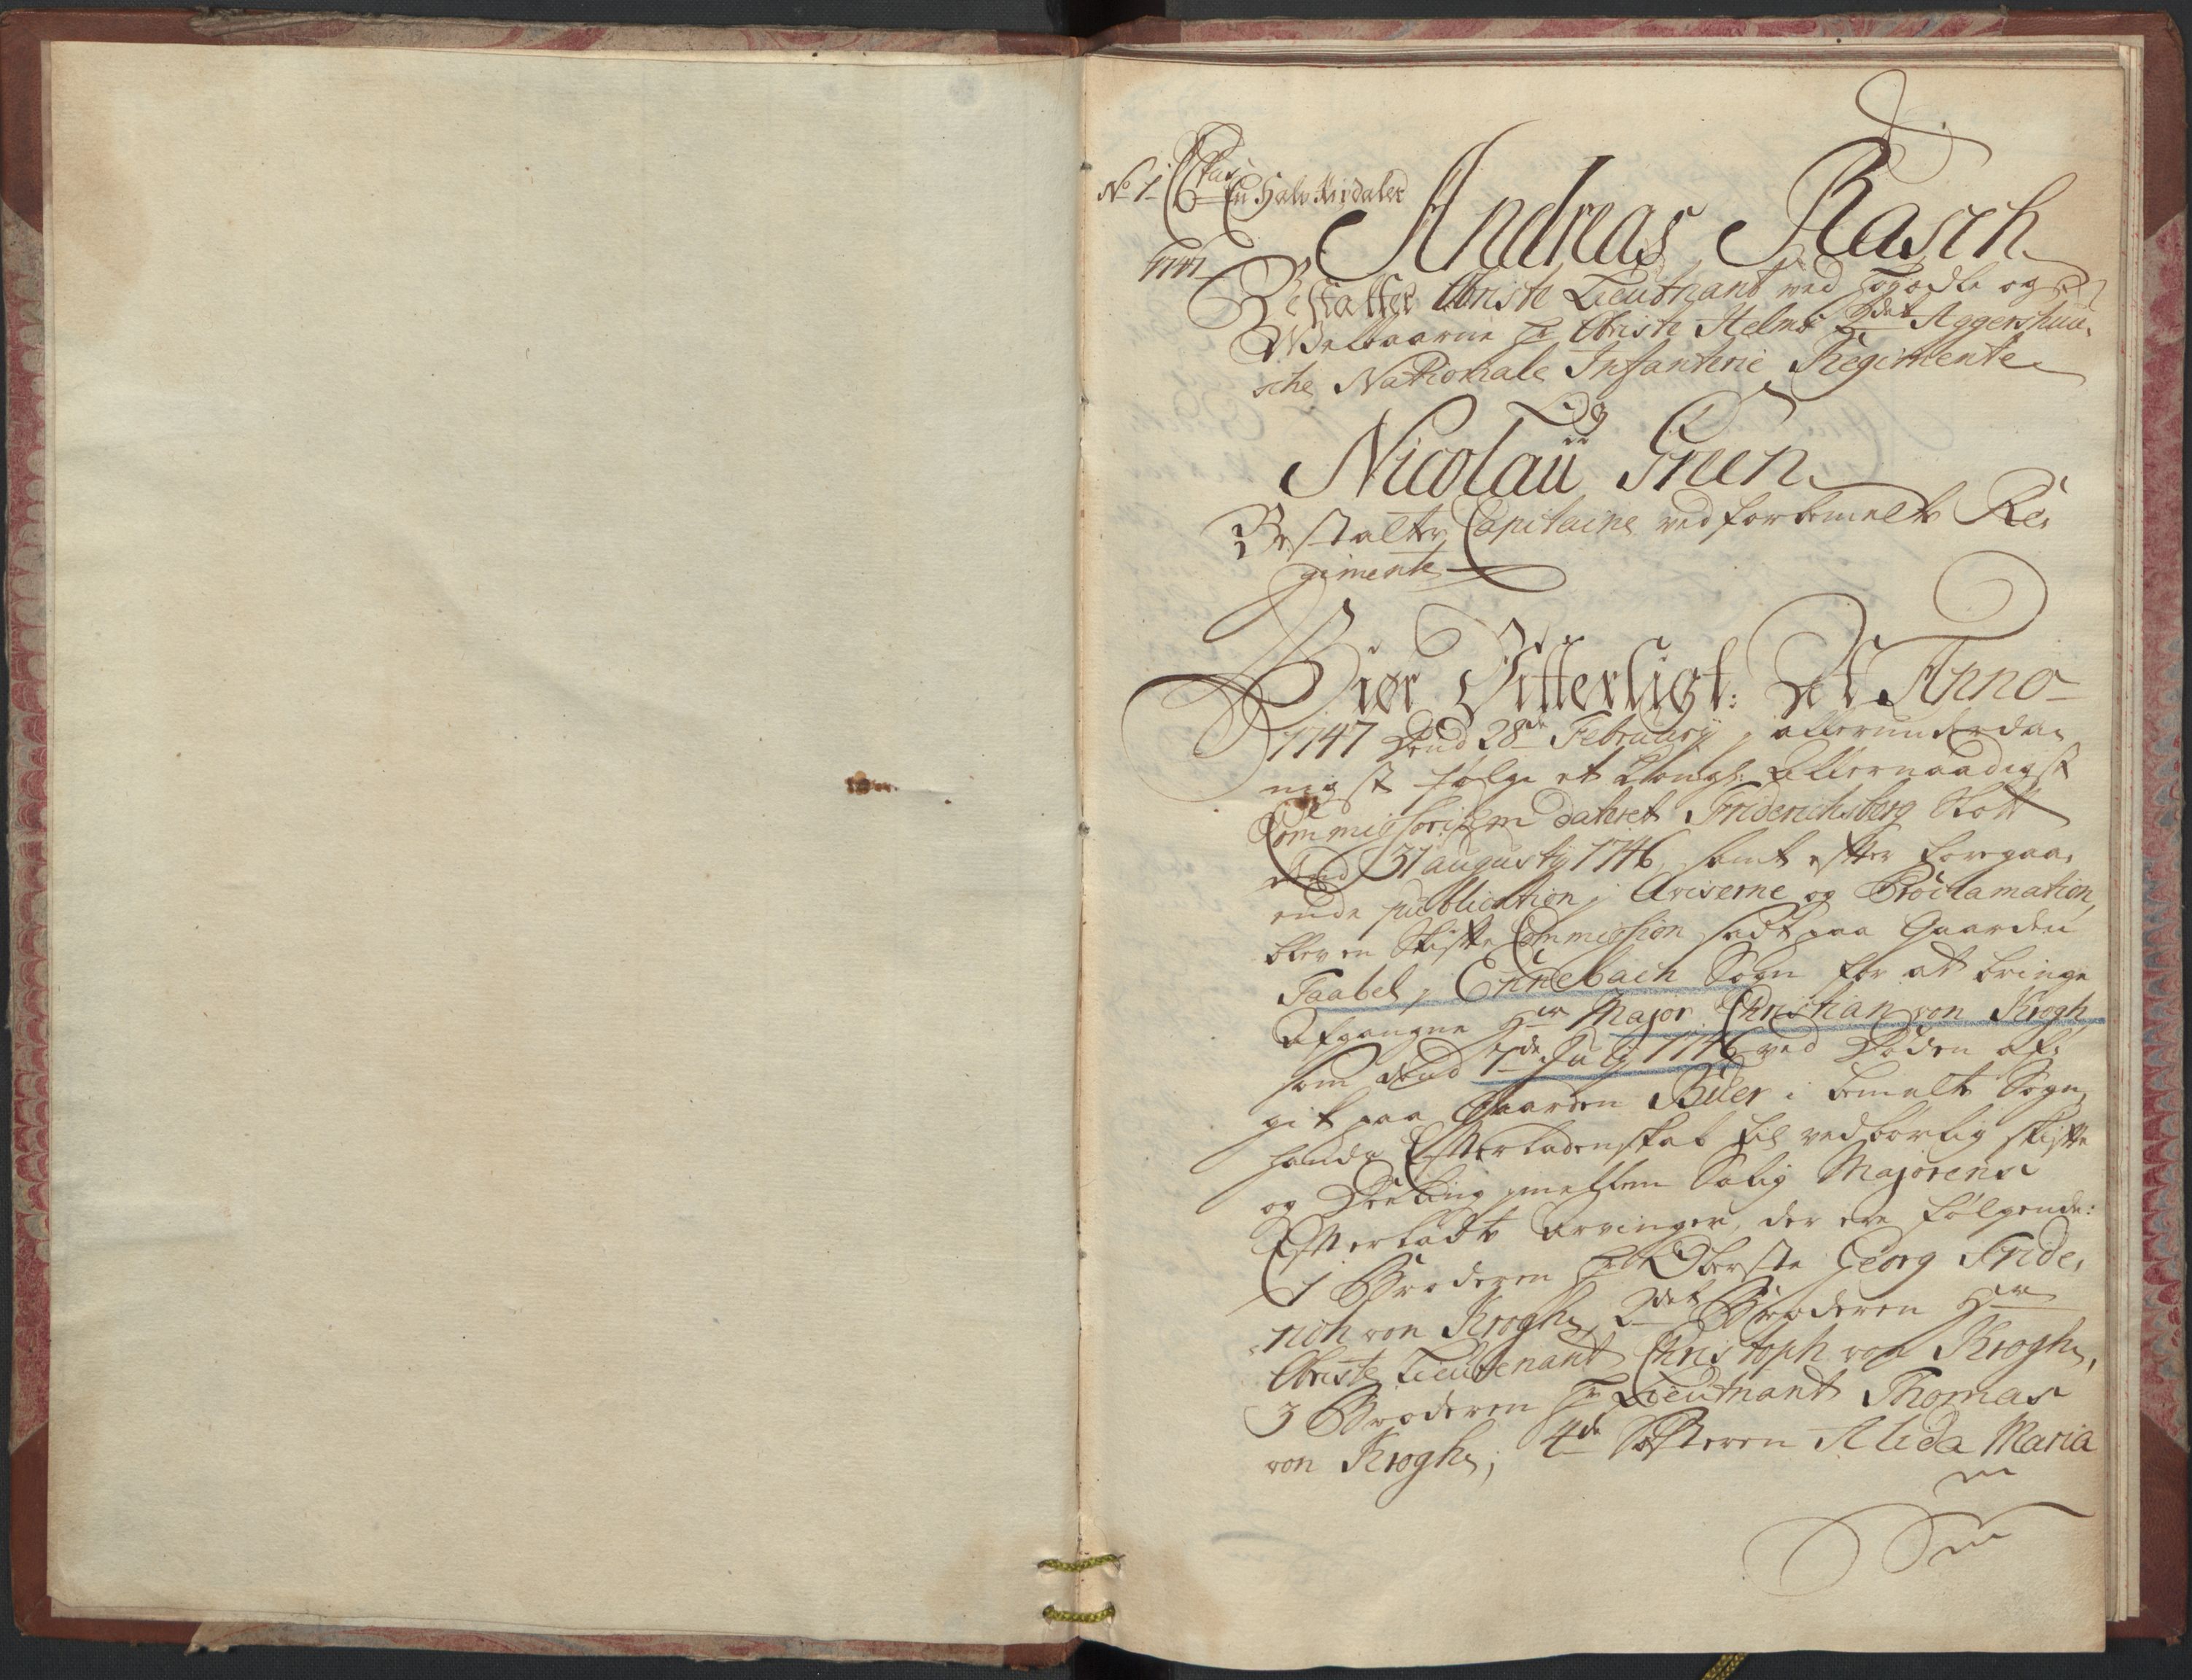 No 1.
En Halv Rixdaler
1747
Andreas Rasch
Bestalter Obriste Lieutnant ved Høyædle og
Welbaarne Hr Obriste Helms 2det Aggershuu,
sche Nationale Infanterie Regimente
Og
Nicolaii Green
Bestalter Capitaine ved forbemelte Re,
gimente
Giør Vitterligt: At Anno
1747 Dend 28de February, allerunderda,
nigst følge et Kongl: Allernaadigst
Commissorium dateret Friderichsberg Slott
dend 31 augusty 1746, samt efter foregaa,
ende publication i Aviserne og Proclamation,
blev en Skifte Commission sadt paa Gaarden
Taabel i Ennebach Sogn for at bringe
Afgangne Hr Major Christian von Krogh,
som dend 7de July 1746 ved Døden af,
git paa Gaarden Biler i bemelte Sogn,
hands Efterladenskab til vedbørlig skifte
og Deeling imellem Salig Majorens
Efterladte Arvinger, der ere følgende:
1 Broderen Hr Oberste Georg Fride,
rich von Krogh, 2det Broderen Hr
Obriste Lieutenant Christoph von Krogh,
3 Broderen Hr Lieutnant Thomas
von Krogh, 4de Søsteren Alida Maria